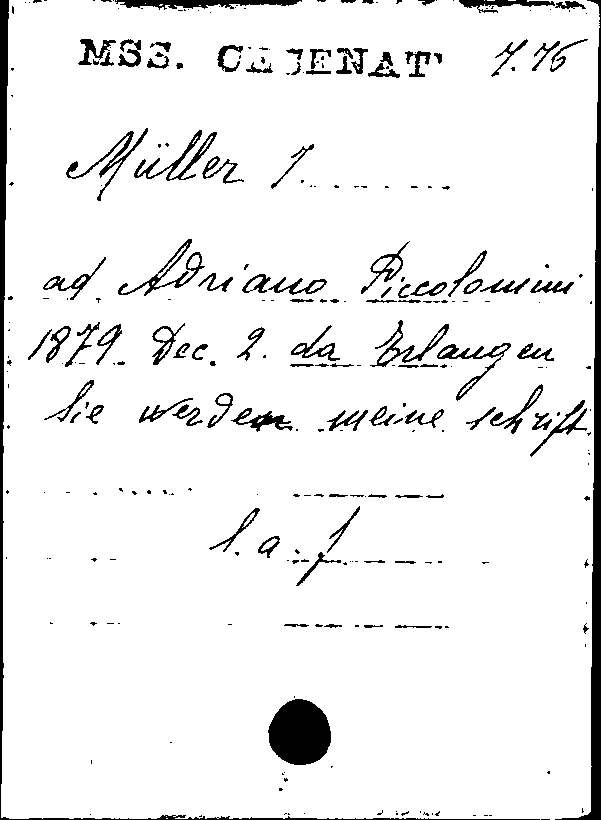 MSS. CASENAT 7.76
Müller J.
ad Adriano Piccolomini
1879 Dec. 2. da Erlangen
Sie werden meine schrift
l. a. f.